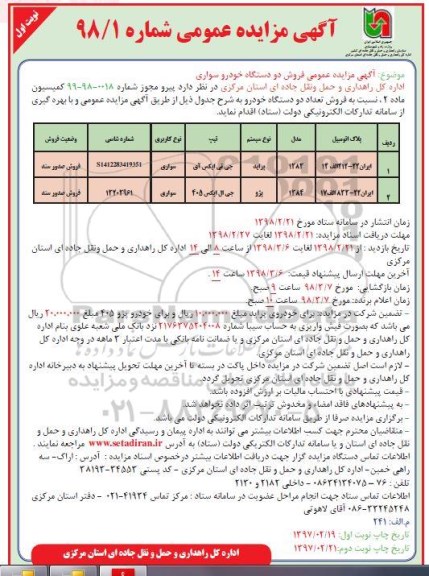 نوبت اول
آگهی مزایده عمومی شماره ۹۸/۱
موضوع: آگهی مزایده عمومی فروش دو دستگاه خودرو سواری
اداره کل راهداری و حمل ونقل جاده ای استان مرکزی در نظر دارد پیرو مجوز شماره ۰۰۱۸-۹۸-۹۹ کمیسیون
ماده ۲ ، نسبت به فروش تعداد دو دستگاه خودرو به شرح جدول ذیل از طریق آگهی مزایده عمومی و با بهره گیری
از سامانه تدارکات الکترونیکی دولت (ستاد) اقدام نماید.
ردیف پلاک اتومبیل مدل نوع سیستم تیپ نوع کاربری شماره شاسی وضعیت فروش
۱ ۱۳۸۲ پراید جی تی ایکس آی سواری S1412283419351 فروش صدور سند
۲ پژو جی ال ایکس ۴۰۵ سواری فروش صدور سند
زمان انتشار در سامانه ستاد مورخ ۱۳۹۸/۲/۲۱
مهلت دریافت اسناد مزایده: ۱۳۹۸/۲/۲۱ لغایت ۱۳۹۸/۲/۲۷
تاریخ بازدید : از ۱۳۹۸/۲/۲۱ لغایت ۱۳۹۸/۳/۶ از ساعت ۸ الی ۱۴ اداره کل راهداری و حمل ونقل جاده ای استان
مرکزی
آخرین مهلت ارسال پیشنهاد قیمت: ۱۳۹۸/۳/۶ ساعت ۱۴ .
زمان بازگشایی: مورخ ۹۸/۳/۷ ساعت ۹ صبح
زمان اعلام برنده: مورخ ۹۸/۳/۷ ساعت ۱۰ صبح
- تضمین شرکت در مزایده: برای خودروی پراید مبلغ ۱۰.۰۰۰.۰۰۰ ریال و برای خودرو پژو ۴۰۵ مبلغ ۲۰.۰۰۰.۰۰۰ ریال
می باشد که بصورت فیش واریزی به حساب سیبا شماره ۲۱۷۶۳۷۵۲۰۴۰۰۸ نزد بانک ملی شعبه علوی بنام اداره
کل راهداری و حمل و نقل جاده ای استان مرکزی و یا ضمانت نامه بانکی با مدت اعتبار ۳ ماهه در وجه اداره کل
راهداری و حمل و نقل جاده ای استان مرکزی
- لازم است اصل تضمین شرکت در مزایده داخل پاکت در بسته تا آخرین مهلت تحویل پیشنهاد به دبیرخانه اداره
کل راهداری و حمل و نقل جاده ای استان مرکزی تحویل گردد.
- قیمت پیشنهادی با احتساب مالیات بر ارزش افزوده باشد.
- به پیشنهادهای فاقد امضاء و مخدوش ترتیب اثر داده نخواهد شد.
- برگزاری مزایده صرفا از طریق سامانه تدارکات الکترونیکی دولت می باشد.
- متقاضیان محترم جهت کسب اطلاعات بیشتر می توانند به اداره پیمان و رسیدگی اداره کل راهداری و حمل و
نقل جاده ای استان و یا سامانه تدارکات الکتریکی دولت (ستاد) به آدرس www.setadiran.ir مراجعه نمایند .
اطلاعات تماس دستگاه مزایده گزار جهت دریافت اطلاعات بیشتر درخصوص اسناد مزایده : آدرس : اراک- سه
راهی خمین- اداره کل راهداری و حمل و نقل جاده ای استان مرکزی - کد پستی ۳۴۵۵۳-۳۸۱۹۳
تلفن : ۷۶ - ۰۸۶۳۴۱۳۴۰۷۵ - داخلی ۲۱۸۲ و ۲۱۳۰
اطلاعات تماس ستاد جهت انجام مراحل عضویت در سامانه ستاد : مرکز تماس ۴۱۹۳۴-۰۲۱ - دفتر استان مرکزی
۰۸۶-۳۲۲۴۵۲۴۸ آقای لاهوتی
م.الف: ۲۴۱
تاریخ چاپ نوبت اول: ۱۳۹۷/۰۲/۱۹
تاریخ چاپ نوبت دوم: ۱۳۹۷/۰۲/۲۱
اداره کل راهداری و حمل و نقل جاده ای استان مرکزی